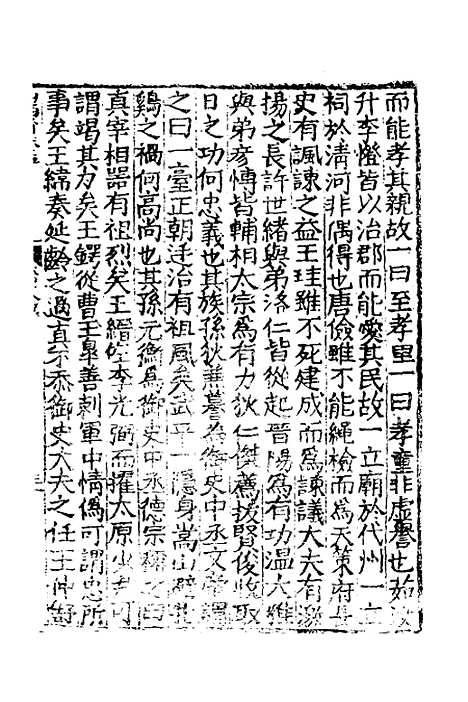 而能孝其親故一曰至孝里一曰孝童非虛譽也茹
升李憕皆以治郡而能愛其民故一立廟於代州一立
祠於清河非偶得也唐儉雖不能繩檢而為天策府長
史有諷諫之益王珪雖不死建成而為諫議大夫有激
揚之長許世緒與弟洛仁皆從起晉陽為有功溫大雅
與弟彥博皆輔相太宗為有力狄仁傑薦拔賢俊收取
日之功何忠義也其族孫狄兼謩為御史中丞文宗謂
之曰一臺正朝廷治有祖風矣武平一隱身嵩山
鷄之禍何高尚也其孫元衡為御史中丞德宗稱之曰
真宰相器有祖烈矣王縉佐李光弼而擢太原少尹可
謂竭其力矣王鍔從曹王臯善刺軍中情偽可謂忠所
事矣王緯奏延齡之過直乎不忝御史大夫之任王仲舒